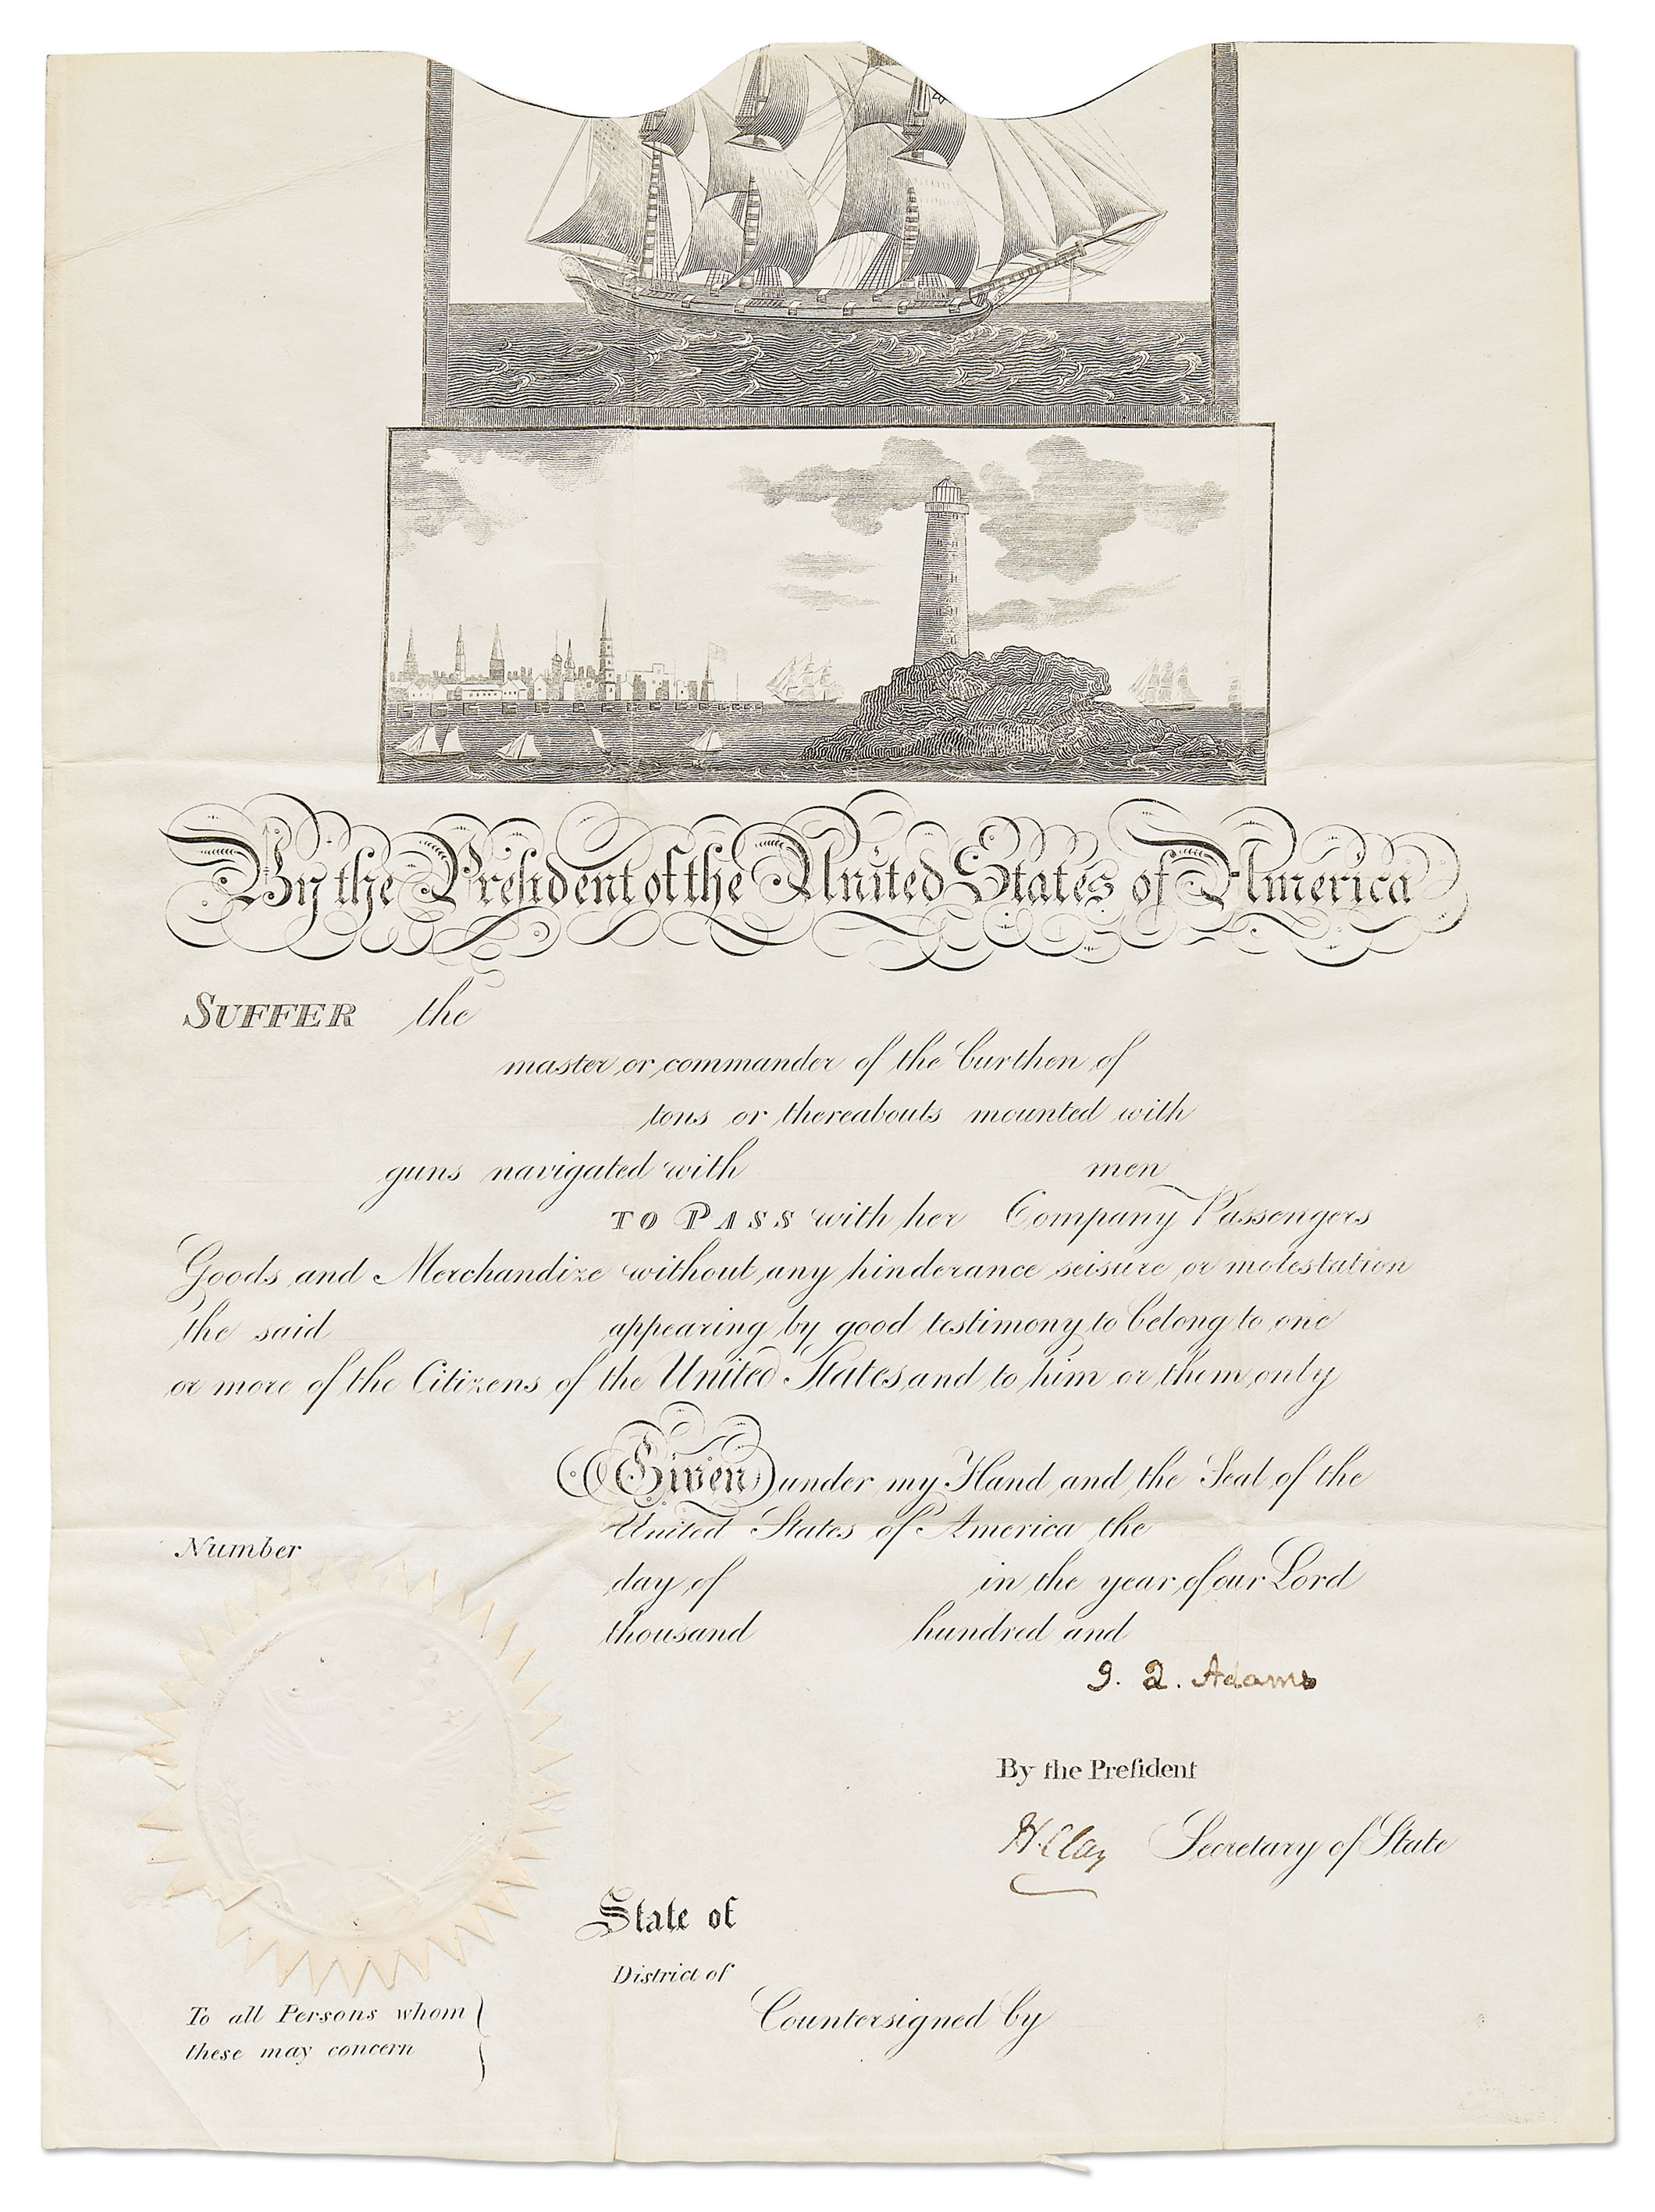 By the President of the United States of America
SUFFER the
master or commander of the burthen of
tons or thereabouts mounted with
guns navigated with men
TO PASS with her Company Passengers
Goods and Merchandize without any hinderance seisure or molestation
the said appearing by good testimony to belong to one
or more of the Citizens of the United States and to him or them only
Given under my Hand and the Seal of the
United States of America the
Number
day of in the year of our Lord
thousand hundred and
J. Q. Adams
By the Preſident
H. Clay Secretary of State
State of
District of
To all Persons whom
these may concern
Countersigned by